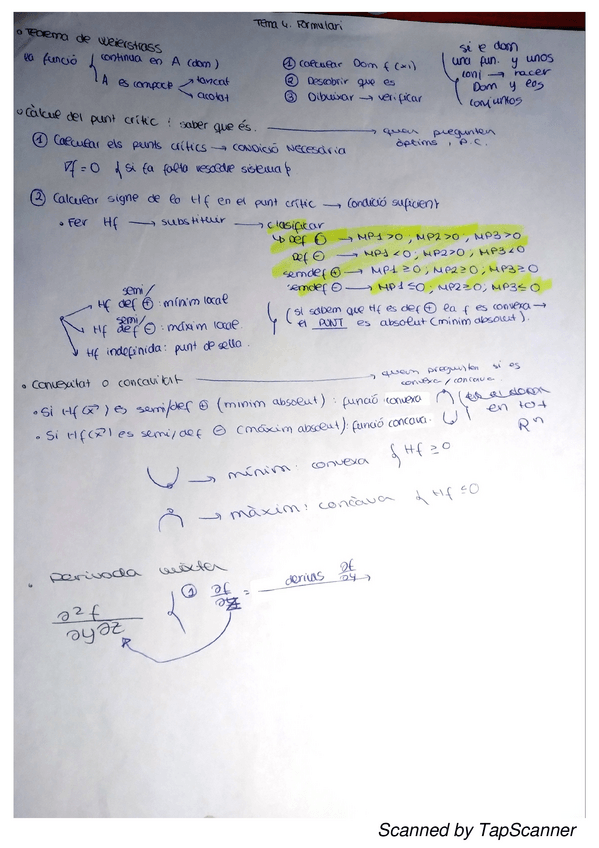 Tema 4. Formulari
• Teorema de Weierstrass
la funció { continua en A (dom)
A es compacte → tancat
→ acotat
① Calcular Dom f(xi)
② Descobrir que es
③ Dibuixar → verificar
si te dom
una fun. y unos
conj → hacer
Dom y los
conjuntos
• Càlcul del punt crític: saber que és. → quan pregunten
òptims, P.C.
① Calcular els punts crítics → CONDICIÓ NECESSÀRIA
∇f = 0 { si fa falta resoldre sistema }
② Calcular signe de la Hf en el punt crític → condició suficient
• Fer Hf → substituir → clasificar
↳ Def ⊕ → MP1>0, MP2>0, MP3>0
Def ⊖ → MP1<0, MP2>0, MP3<0
semdef ⊕ → MP1≥0, MP2≥0, MP3≥0
semdef ⊖ → MP1≤0, MP2≥0, MP3≤0
Hf semi/def ⊕: mínim local
Hf semi/def ⊖: màxim local
Hf indefinida: punt de sella.
(si sabem que Hf es def ⊕ la f es convexa →
el PUNT es absolut (mínim absolut).
• Convexitat o concavitat → quan pregunten si es
convexa/concava
• Si Hf(x⃗) es semi/def ⊕ (minim absolut): funció convexa
• Si Hf(x⃗) es semi/def ⊖ (màxim absolut): funció concava.
en tot
Rⁿ
∪ → mínim: convexa { Hf ≥ 0
∩ → màxim: còncava { Hf ≤ 0
• Derivada mixta
∂²f
∂y∂z
{ ① ∂f
∂z =
derives ∂f
∂y
Scanned by TapScanner